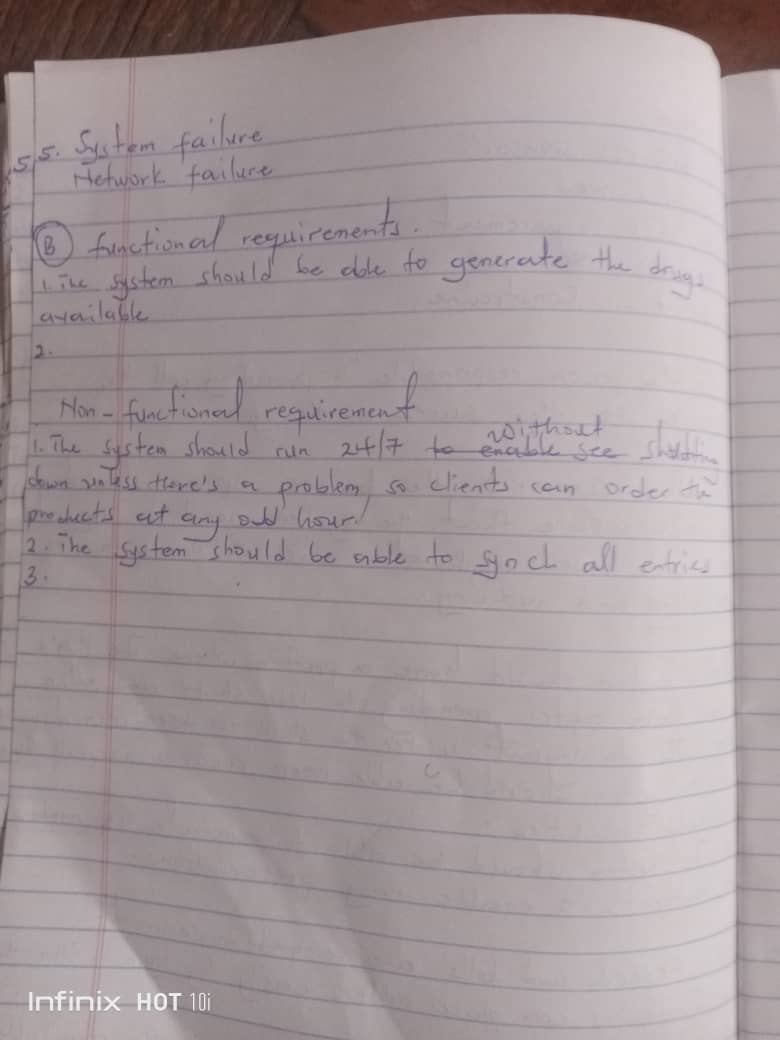 5.5. System failure
Network failure
B functional requirements.
1. The system should be able to generate the drugs
available
2.
Non-functional requirement
without
1. The system should run 24/7 to enable see shutting
down unless there's a problem, so clients can order the
products at any odd hour
2. The system should be able to synch all entries
3.
Infinix HOT 10i